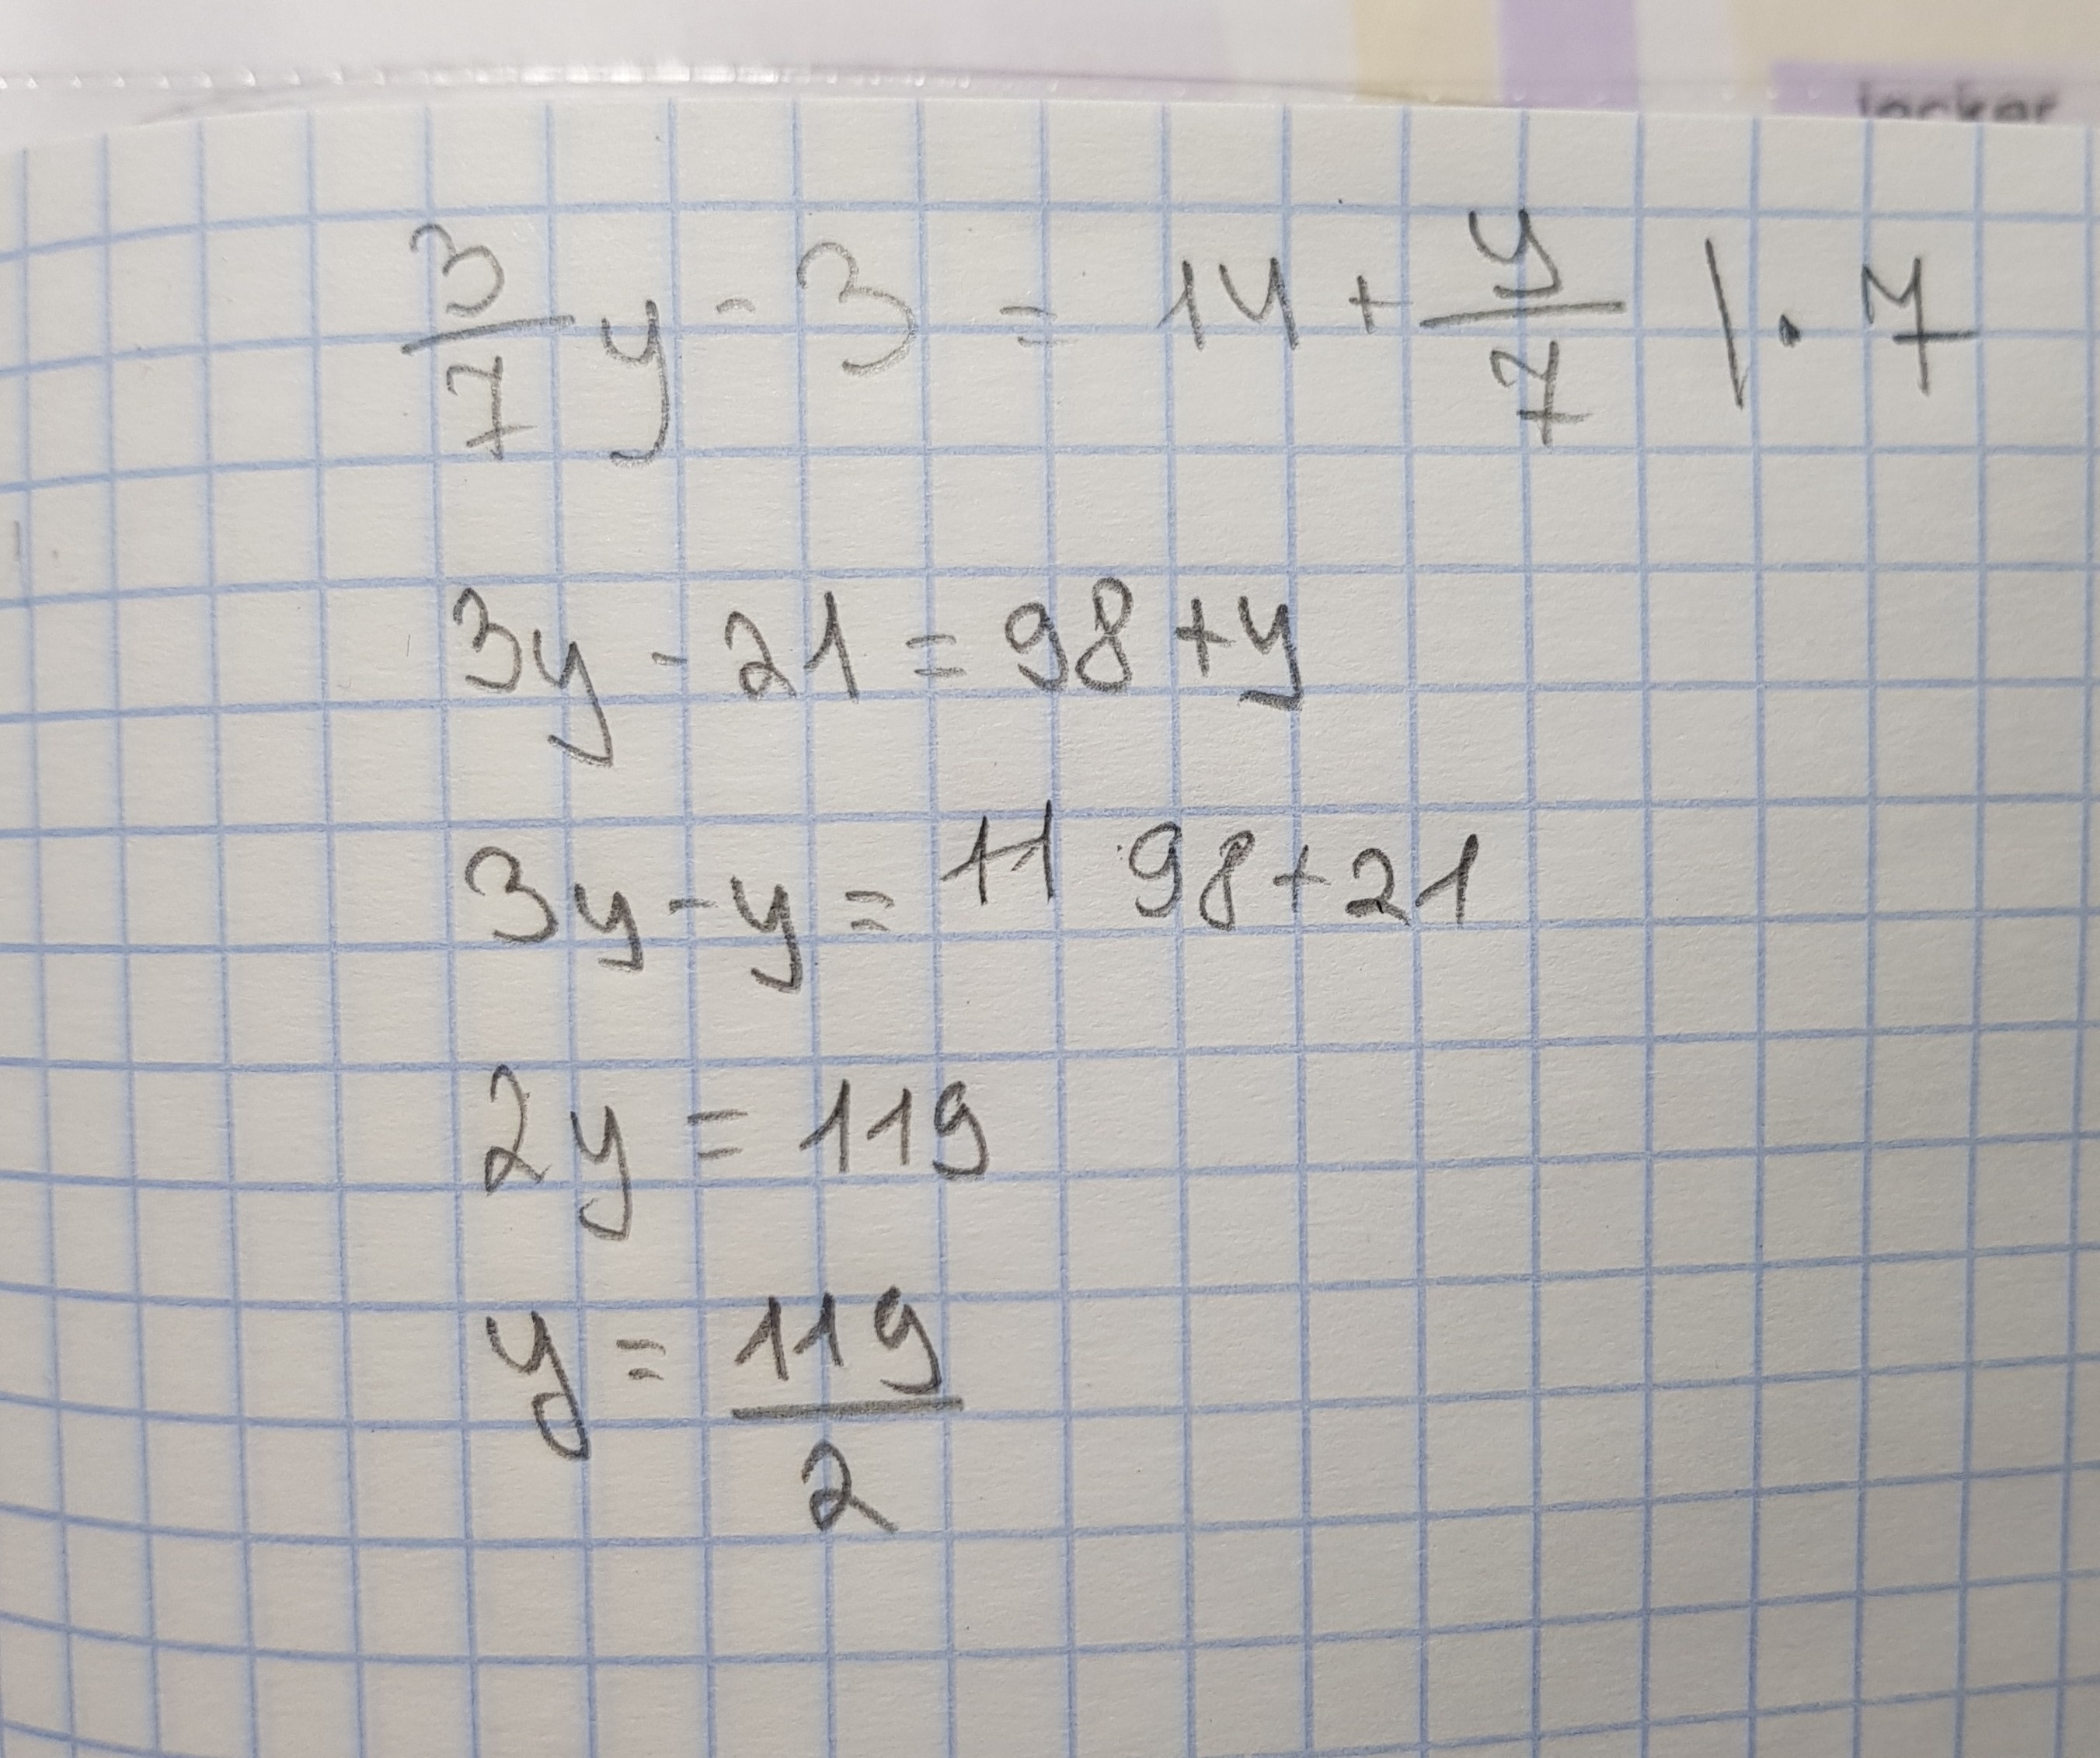 locker
3/7 y - 3 = 14 + y/7 | · 7
3y - 21 = 98 + y
3y - y = 11 98 + 21
2y = 119
y = 119/2